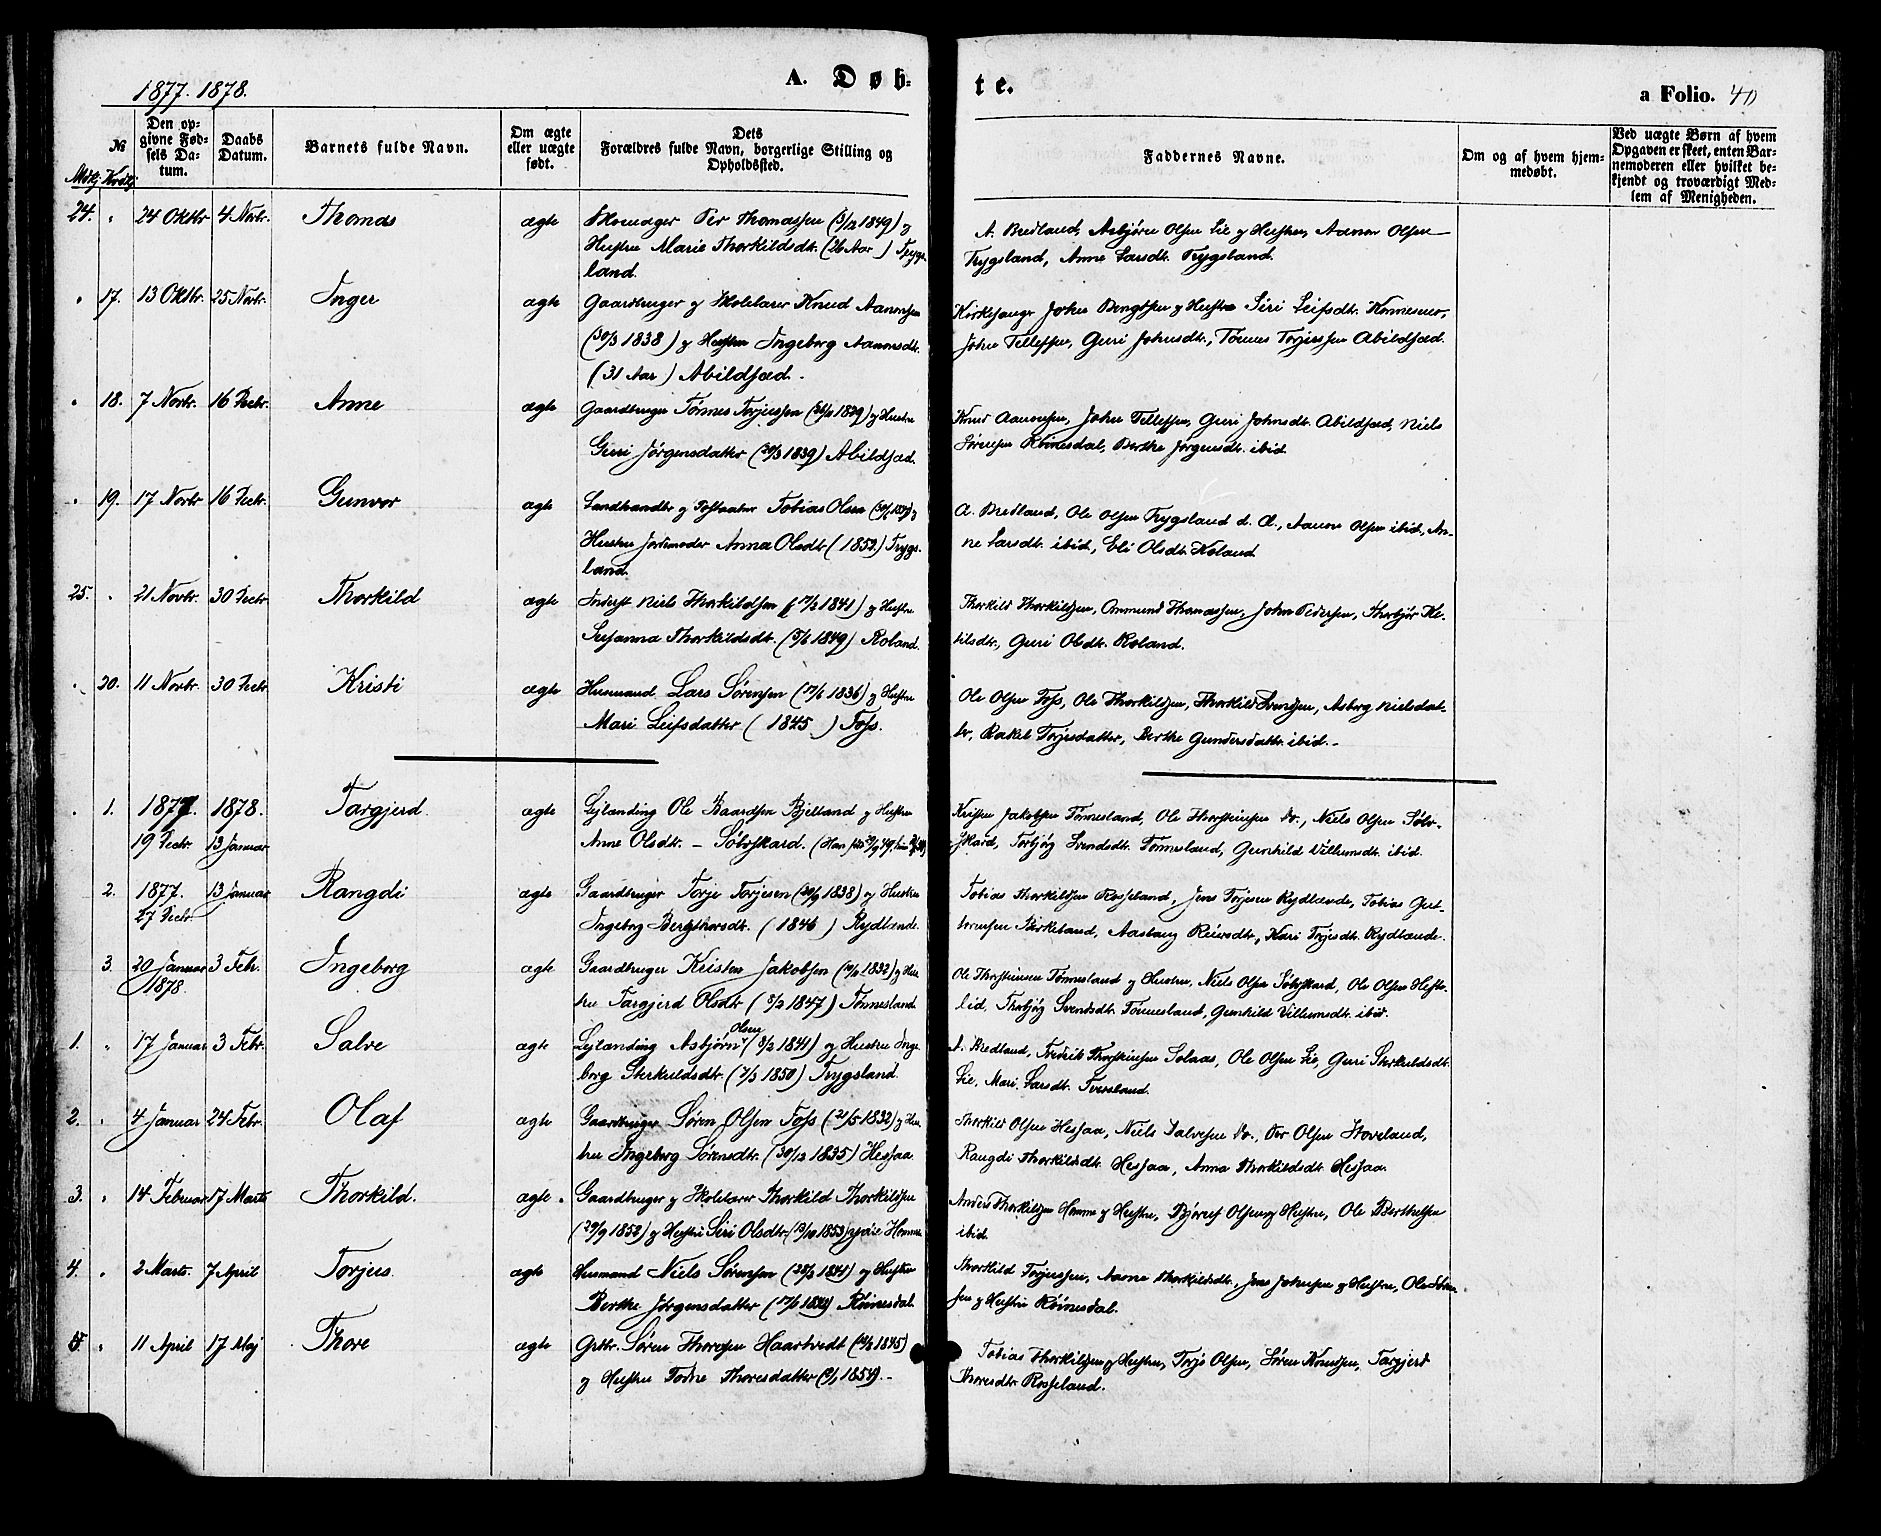 1877. 1878.
A. Døb-
te.
a Folio. 40
№
Mdkj. Kvdkj.
Den op-
givne Fød-
sels Da-
tum.
Daabs
Datum.
Barnets fulde Navn.
Om ægte
eller uægte
født.
Dets
Forældres fulde Navn, borgerlige Stilling og
Opholdssted.
Faddernes Navne.
Om og af hvem hjem-
medøbt.
Ved uægte Børn af hvem
Opgaven er skeet, enten Bar-
nemoderen eller hvilket be-
kjendt og troværdigt Med-
lem af Menigheden.
24. " 24 Oktbr 4 Novbr. Thomas ægte Skomager Per Thomassen (5/12 1849) og
Hustru Marie Thorkildsdt. (26 Aar ) Trygs-
land.
A. Bredland, Asbjørn Olsen Lie og Hustru, Aanon Olsen
Trygsland, Anne Larsdt. Trygsland.
" 17. 13 Oktbr. 25 Novbr. Inger ægte Gaardbruger og Skolelærer Knud Aanonsen
(30/3 1838) og Hustru Ingeborg Aanonsdt.
(31 Aar) Abildsæd.
Kirkesanger John Bengtsen og Hustru Siri Leifsdt. Konnesmo,
John Tellefsen, Guri Johnsdt., Tønnes Torjussen Abildsæd.
" 18. 7 Novbr. 16 Decbr. Anne ægte Gaardbruger Tønnes Torjussen ( 1829) og Hustru
Guri Jørgensdatter (20/3 1839) Abildsæd.
Knud Aanonsen, John Tellefsen, Guri Johnsdt. Abildsæd, Niels
Sørensen Røinesdal, Berthe Jørgensdt. ibid.
" 19. 17 Novbr 16 Decbr. Gunvor ægte Landhandler og Tobias Olsen og
Hustru Jordmoder Anna Olsdt. (1852) Trygs-
land.
A. Bredland, Ole Olsen Trygsland d. Æ., Aanon Olsen ibid., An-
ne Larsdt. ibid., Eli Olsdt. Roland
25. " 21 Novbr. 30 Decbr Thorkild ægte Inderst Niels Thorkildsen (17/2 1841) og Hustru
Susanna Thorkildsdt. (5/6 1849) Roland.
Thorkild Thorkildsen, Ommund Thomassen, John Pedersen, Thorbjør Ke-
tilsdt., Guri Olsdt. Roland.
" 20. 11 Novbr. 30 Decbr Kristi ægte Husmand Lars Sørensen (17/6 1836) og Hustru
Mari Leifsdatter ( 1845 ) Foss.
Ole Olsen Foss, Ole Thorkildsen, Thorkild Svendsen, Asborg Nielsdat-
ter, Rakel Torjusdatter, Berthe Gundersdatter ibid.
" 1. 1877. 1878. Targjerd. ægte Lejlænding Ole Baardsen Bjelland og Hustru
19 Decbr 13 Januar Anne Olsdt. – Sølvskard.
Kristen Jakobsen Tønnesland, Ole Thorsteinsen Do., Niels Olsen Sølv-
skard, Torbjøg Svendsdt. Tønnesland, Gunhild Villumsdt. ibid.
2. 1877. 13 Januar Rangdi ægte Gaardbruger Torje Torjesen (20/9 1838) og Hustru
27 Decbr Ingeborg Bergthorsdt. ( 1846 ) Rydlende.
Tobias Thorkildsen Rosseland, Jens Torjesen Rydlende, Tobias Gut-
tormsen Birkeland, Aaslaug Reiersdt., Kari Torjesdt. Rydlende.
3. 20 Januar 3 Feb. Ingeborg ægte Gaardbruger Kristen Jakobsen ( 1832) og Hus-
1878. tru Targjerd Olsdtr (5/2 1847) Tønnesland
Ole Thorsteinsen Tønnesland og Hustru, Niels Olsen Sølvskard, Ole Olsen Hefte-
lid, Thorbjøg Svendsdt. Tønnesland, Gunhild Villumsdt. ibid.
1. " 17 Januar 3 Febr. Salve ægte Lejlænding Asbjørn Olsen (3/2 1841) og Hustru Inge-
borg Sterkuldsdt. (7/3 1850) Trygsland.
A. Bredland, Fredrik Thorsteinsen Solaas, Ole Olsen Lie, Guri Sterkuldsdt.
Lie, Mari Larsdt. Tversland.
2. " 4 Januar 24 Febr. Olaf ægte Gaardbruger Søren Olsen Foss (21/5 1832) og Hus-
tru Ingeborg Sørensdt. (30/12 1835) Hessaa
Thorkild Olsen Hessaa, Niels Salvesen Do., Per Olsen Hoveland,
Rangdi Thorkildsdt. Hessaa, Anna Thorkildsdt. Hessaa.
3. " 14 Februar 17 Marts Thorkild. ægte. Gaardbruger og Skolelærer Thorkild Thorkildsen
(29/9 1852) og Hustru Siri Olsdt. ( 1853) Homme
Anders Thorkildsen Homme og Hustru, Bjørulf Olsen og Hustru, Ole Berthelsen
ibid.
4. " 2 Marts. 7 April Torjus. ægte Husmand Niels Sørensen (28/3 1841) og Hustru
Berthe Jørgensdatter Røinesdal.
Thorkild Torjussen, Aanne Thorkildsdt., Jens Johnsen og Hustru, Ole
sen og Hustru Røinesdal.
5. " 11 April 17 Maj Thore ægte Gbr. Søren Thoresen Haartvedt ( 1845)
og Hustru Tone Thoresdatter ( 1854).
Tobias Thorkildsen og Hustru, Torjs Olsen, Søren Knudsen, Targjerd
Thoresdtr. Rosseland.